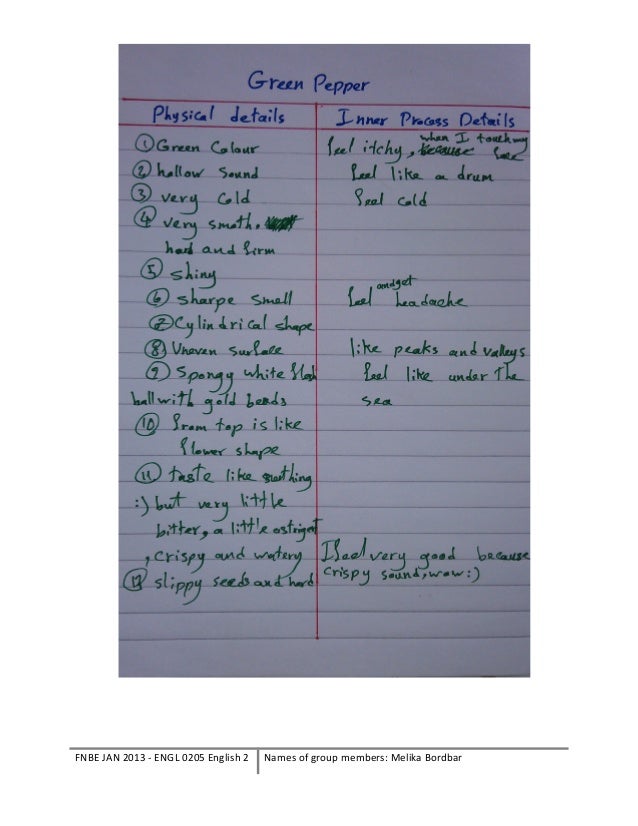 Green Pepper
Physical details Inner Process Details
① Green Colour feel itchy, when I touch my face
② hollow Sound feel like a drum
③ very Cold feel cold
④ very smoth,
hard and firm
⑤ shiny
⑥ sharpe smell feel and get headache
⑦ Cylindrical shape
⑧ Uneven surface like peaks and valleys
⑨ Spongy white flesh feel like under the
ball with gold beads sea
⑩ from top is like
flower shape
⑪ taste like
:) but very little
bitter, a little astrigent
, crispy and watery I feel very good because
⑫ slippy seeds and hard crispy sound, wow :)
FNBE JAN 2013 - ENGL 0205 English 2 Names of group members: Melika Bordbar